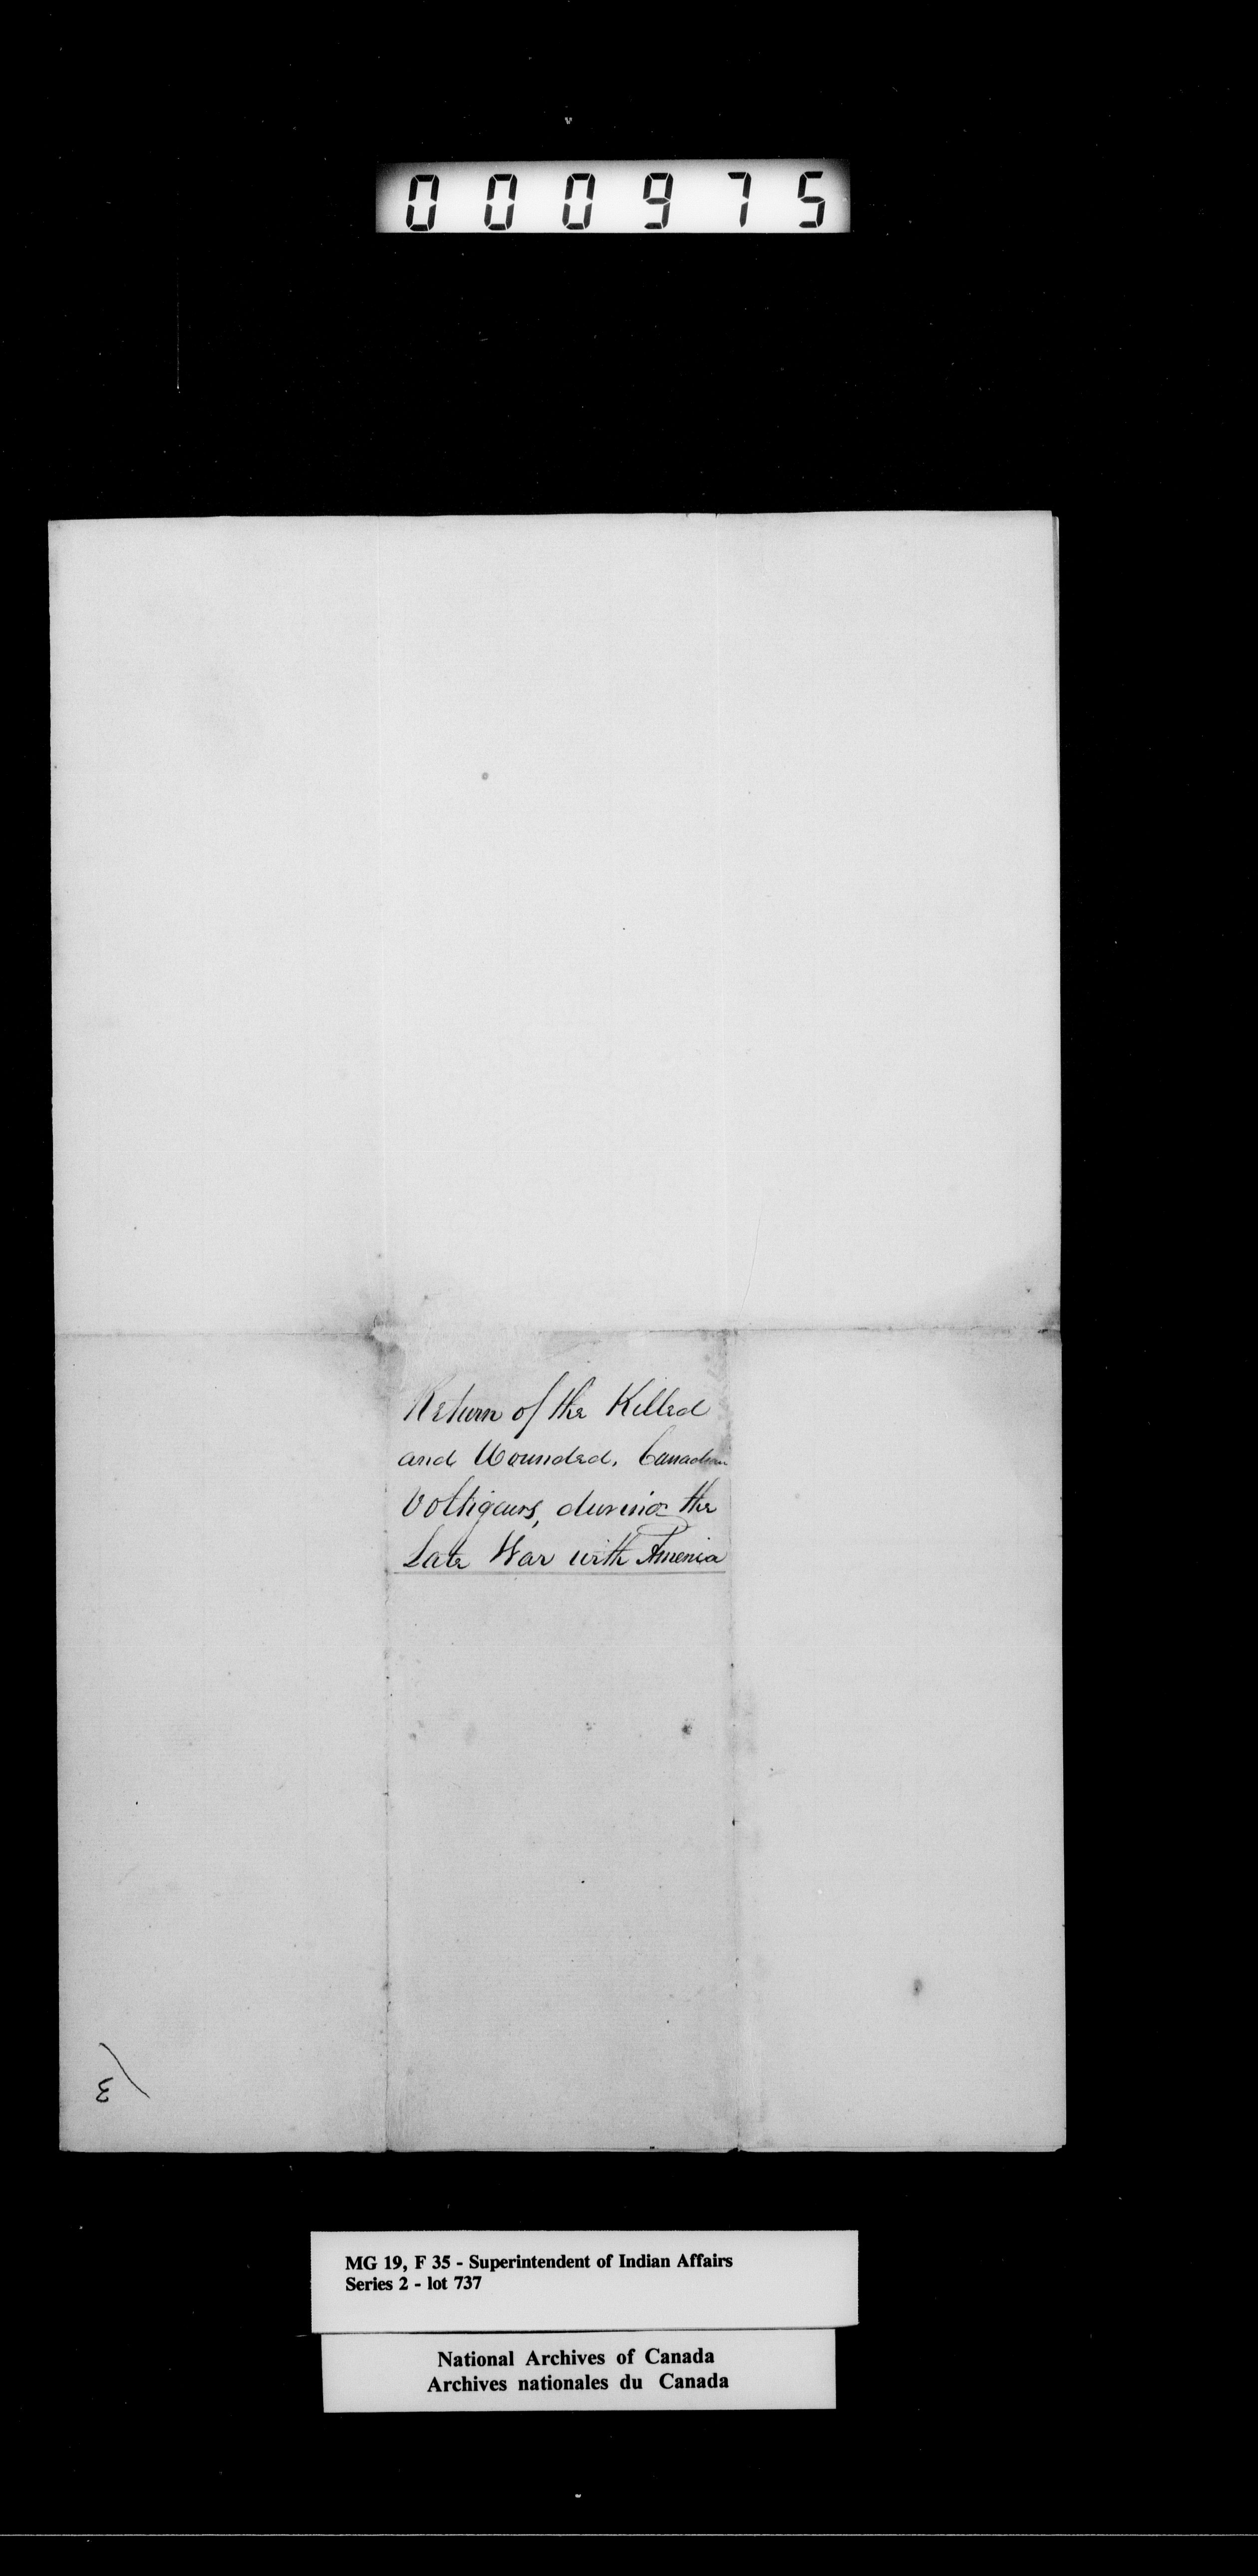 000975
Return of the Killed
and Wounded, Canadian
Voltigeurs, during the
Late War with America
3
MG 19, F 35 - Superintendent of Indian Affairs
Series 2 - lot 737
National Archives of Canada
Archives nationales du Canada